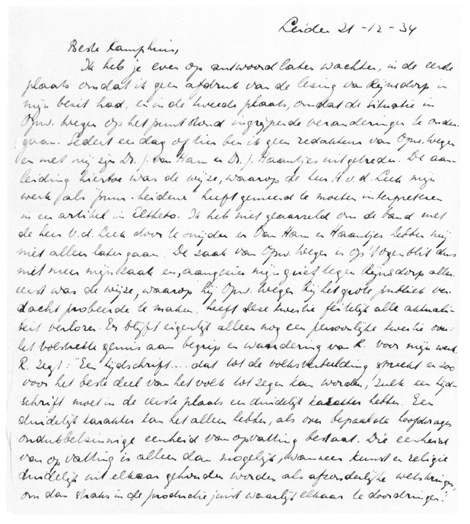 Leiden 21-12-34
Beste Kamphuis,
Ik heb je even op antwoord laten wachten, in de eerste
plaats omdat ik geen afdruk van de lezing van Rijnsdorp in
mijn bezit had, en in de tweede plaats, omdat de situatie in
Opw. Wegen op het punt stond ingrijpende veranderingen te onder-
gaan. Sedert een dag of tien ben ik geen redakteur van Opw. Wegen
en met mij zijn Dr. J. van Ham en Dr. J. Haantjes uitgetreden. De aan-
leiding hiertoe was de wijze, waarop de heer H. v.d. Leek mijn
werk als heeft gemeend te moeten interpreteren
in een artikel in Elthéto. Ik heb niet geaarzeld om de band met
de heer v.d. Leek door te snijden en Van Ham en Haantjes hebben mij
niet alleen laten gaan. De zaak van Opw. Wegen is op 't ogenblik dus
niet meer mijn zaak en, aangezien mijn grief tegen Rijnsdorp aller-
eerst was de wijze, waarop hij Opw. Wegen bij het grote publiek ver-
dacht probeerde te maken, heeft deze kwestie feitelijk alle aktuali-
teit verloren. Er blijft eigenlijk alleen nog een persoonlijke kwestie om:
het volstrekte gemis aan begrip en waardering van R. voor mijn werk.
R. zegt: "Een tijdschrift.... dat tot de volksverbeelding spreekt en zoo
voor het beste deel van het volk tot zegen kan worden, zulk een tijd-
schrift moet in de eerste plaats een duidelijk karakter hebben. Een
duidelijk karakter kan het alleen hebben, als over bepaalde hoofdvragen
ondubbelzinnige eenheid van opvatting bestaat. Die eenheid
van opvatting is alleen dan mogelijk, wanneer kunst en religie
duidelijk uit elkaar gehouden worden als afzonderlijke
om dan straks in de productie juist waarlijk elkaar te doordringen."